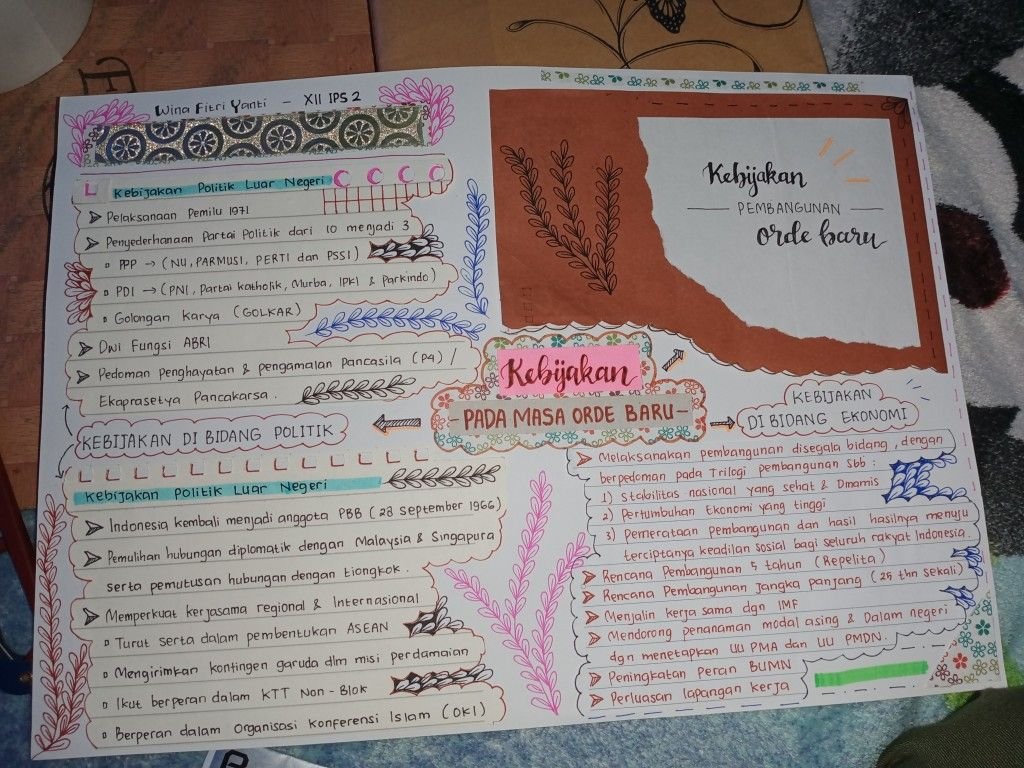 Wina Fitri Yanti - XII IPS 2
Kebijakan Politik Luar Negeri
Pelaksanaan Pemilu 1971
Penyederhanaan Partai Politik dari 10 menjadi 3
PPP → (NU, PARMUSI, PERTI dan PSSI)
PDI → (PNI, Partai Katholik, Murba, IPKI & Parkindo)
Golongan Karya (GOLKAR)
Dwi Fungsi ABRI
Pedoman Penghayatan & pengamalan Pancasila (P4) /
Ekaprasetya Pancakarsa.
KEBIJAKAN DI BIDANG POLITIK
Kebijakan Politik Luar Negeri
Indonesia kembali menjadi anggota PBB (28 September 1966)
Pemulihan hubungan diplomatik dengan Malaysia & Singapura
serta pemutusan hubungan dengan tiongkok.
Memperkuat kerjasama regional & Internasional
Turut serta dalam pembentukan ASEAN
Mengirimkan kontingen garuda dlm misi perdamaian
Ikut berperan dalam KTT Non-Blok
Berperan dalam Organisasi Konferensi Islam (OKI)
Kebijakan
PEMBANGUNAN
Orde baru
Kebijakan
PADA MASA ORDE BARU-
KEBIJAKAN
DI BIDANG EKONOMI
Melaksanakan pembangunan disegala bidang, dengan
berpedoman pada Trilogi pembangunan Sbb :
1) Stabilitas nasional yang sehat & Dinamis
2) Pertumbuhan Ekonomi yang tinggi
3) Pemerataan Pembangunan dan hasil hasilnya menuju
terciptanya keadilan sosial bagi seluruh rakyat Indonesia.
Rencana Pembangunan 5 tahun (Repelita)
Rencana Pembangunan Jangka panjang (25 thn sekali)
Menjalin kerja sama dgn IMF
Mendorong penanaman modal asing & Dalam negeri
dgn menetapkan UU PMA dan UU PMDN.
Peningkatan Peran BUMN
Perluasan lapangan kerja